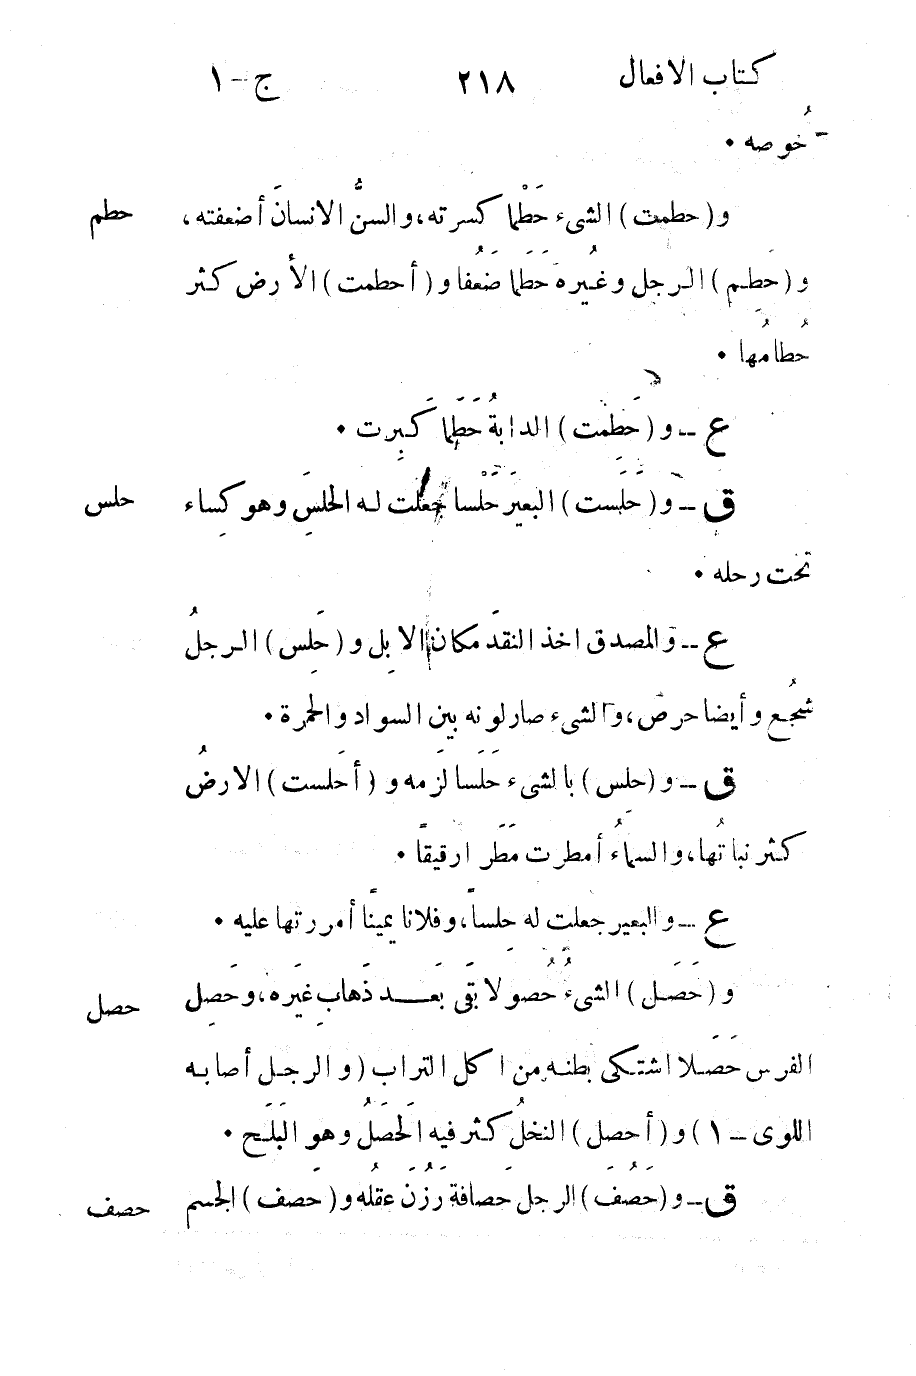 كتاب الافعال ٢١٨ ج-١
خُوصه ٠
و(حطمت) الشىء حَطْما كسرته، والسنُّ الانسانَ أضعفته، حطم
و(حَطِم) الرجل وغيُره حَطَما ضَعُفا و(أحطمت) الأرض كثر
حُطامُها ٠
ع – و(حَطِمت) الدابةُ حَطَما كَبِرت ٠
ق – و(حَلَست) البعيرَ حَلْسا جعلت له الحِلسَ وهو كِساء حلس
تحت رحله ٠
ع – والمصدق اخذ النقدَ مكان الابِل و(حَلِس) الرجلُ
شجُع وأيضا حرص، والشىء صار لونه بين السواد والحمرة ٠
ق – و(حلِس) بالشىء حَلَسا لَزمه و(أحَلست) الارضُ
كثر نباتُها، والسماءُ أمطرت مَطَرا رقيقًا ٠
ع – والبعير جعلت له حِلساً، وفلانا يمينًا أمررتها عليه ٠
و(حَصَل) الشىءُ حُصولا بَقى بَعد ذَهابِ غيَره، وحَصِل حصل
الفرس حَصَلا اشتكى بطنه من اكل التراب (والرجل أصابه
اللوى – ١) و(أحصل) النخلُ كثر فيه الَحصَلُ وهو البَلَح ٠
ق – و(حَصُفَ) الرجل حَصافة رَزُنَ عقلُه و(حَصف) الجسم حصف